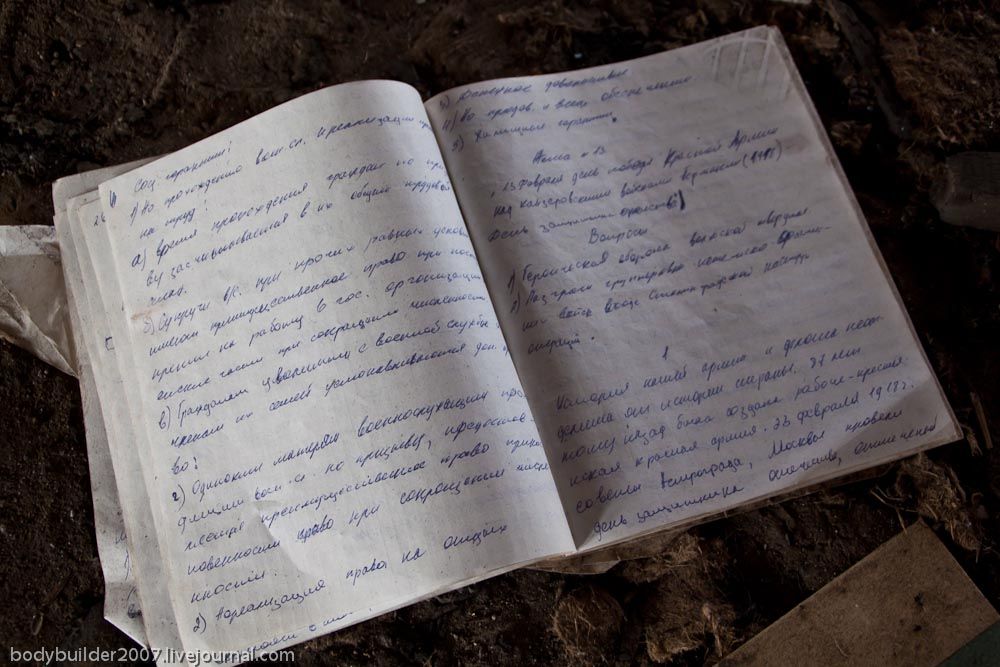 Соц. гарантии!
1) По прохождению воен.сл. и реализации права
на труд!
а) время прохождения граждан по при
зыву засчитывается в их общий трудовой
стаж.
б) Супруги в/с. при прочих равных услов
имеют преимущественное право при посту
плении на работу в гос. организации
при сокращении численности
в) Гражданам уволенным с военной службы
и членам их семей устанавливаются доп.
во:
г) Одиноким матерям военнослужащих про
ходящим воен. сл. по призыву, предостав-
преимущественное право
право при сокращении числе
нности.
2) По реализации права на отдых
3) Денежное довольствие
4) По продов. и вещ. обеспечению
5) Жилищные гарантии.
Тема №13
23 февраля день победы Красной Армии
над кайзеровскими войсками Германии (1918)
День защитника отечества
Вопросы
1) Героическая оборона
2) Разгром группировки немецко-фашист-
войск в ходе Сталинградской наступ
операции.
1
История нашей армии и флота неот-
делима от истории страны. 87 лет
тому назад была создана рабоче-крестьян-
ская красная армия. 23 февраля 1918 г.
советы Петрограда, Москвы провели
день защитника отечества,
bodybuilder2007.livejournal.com